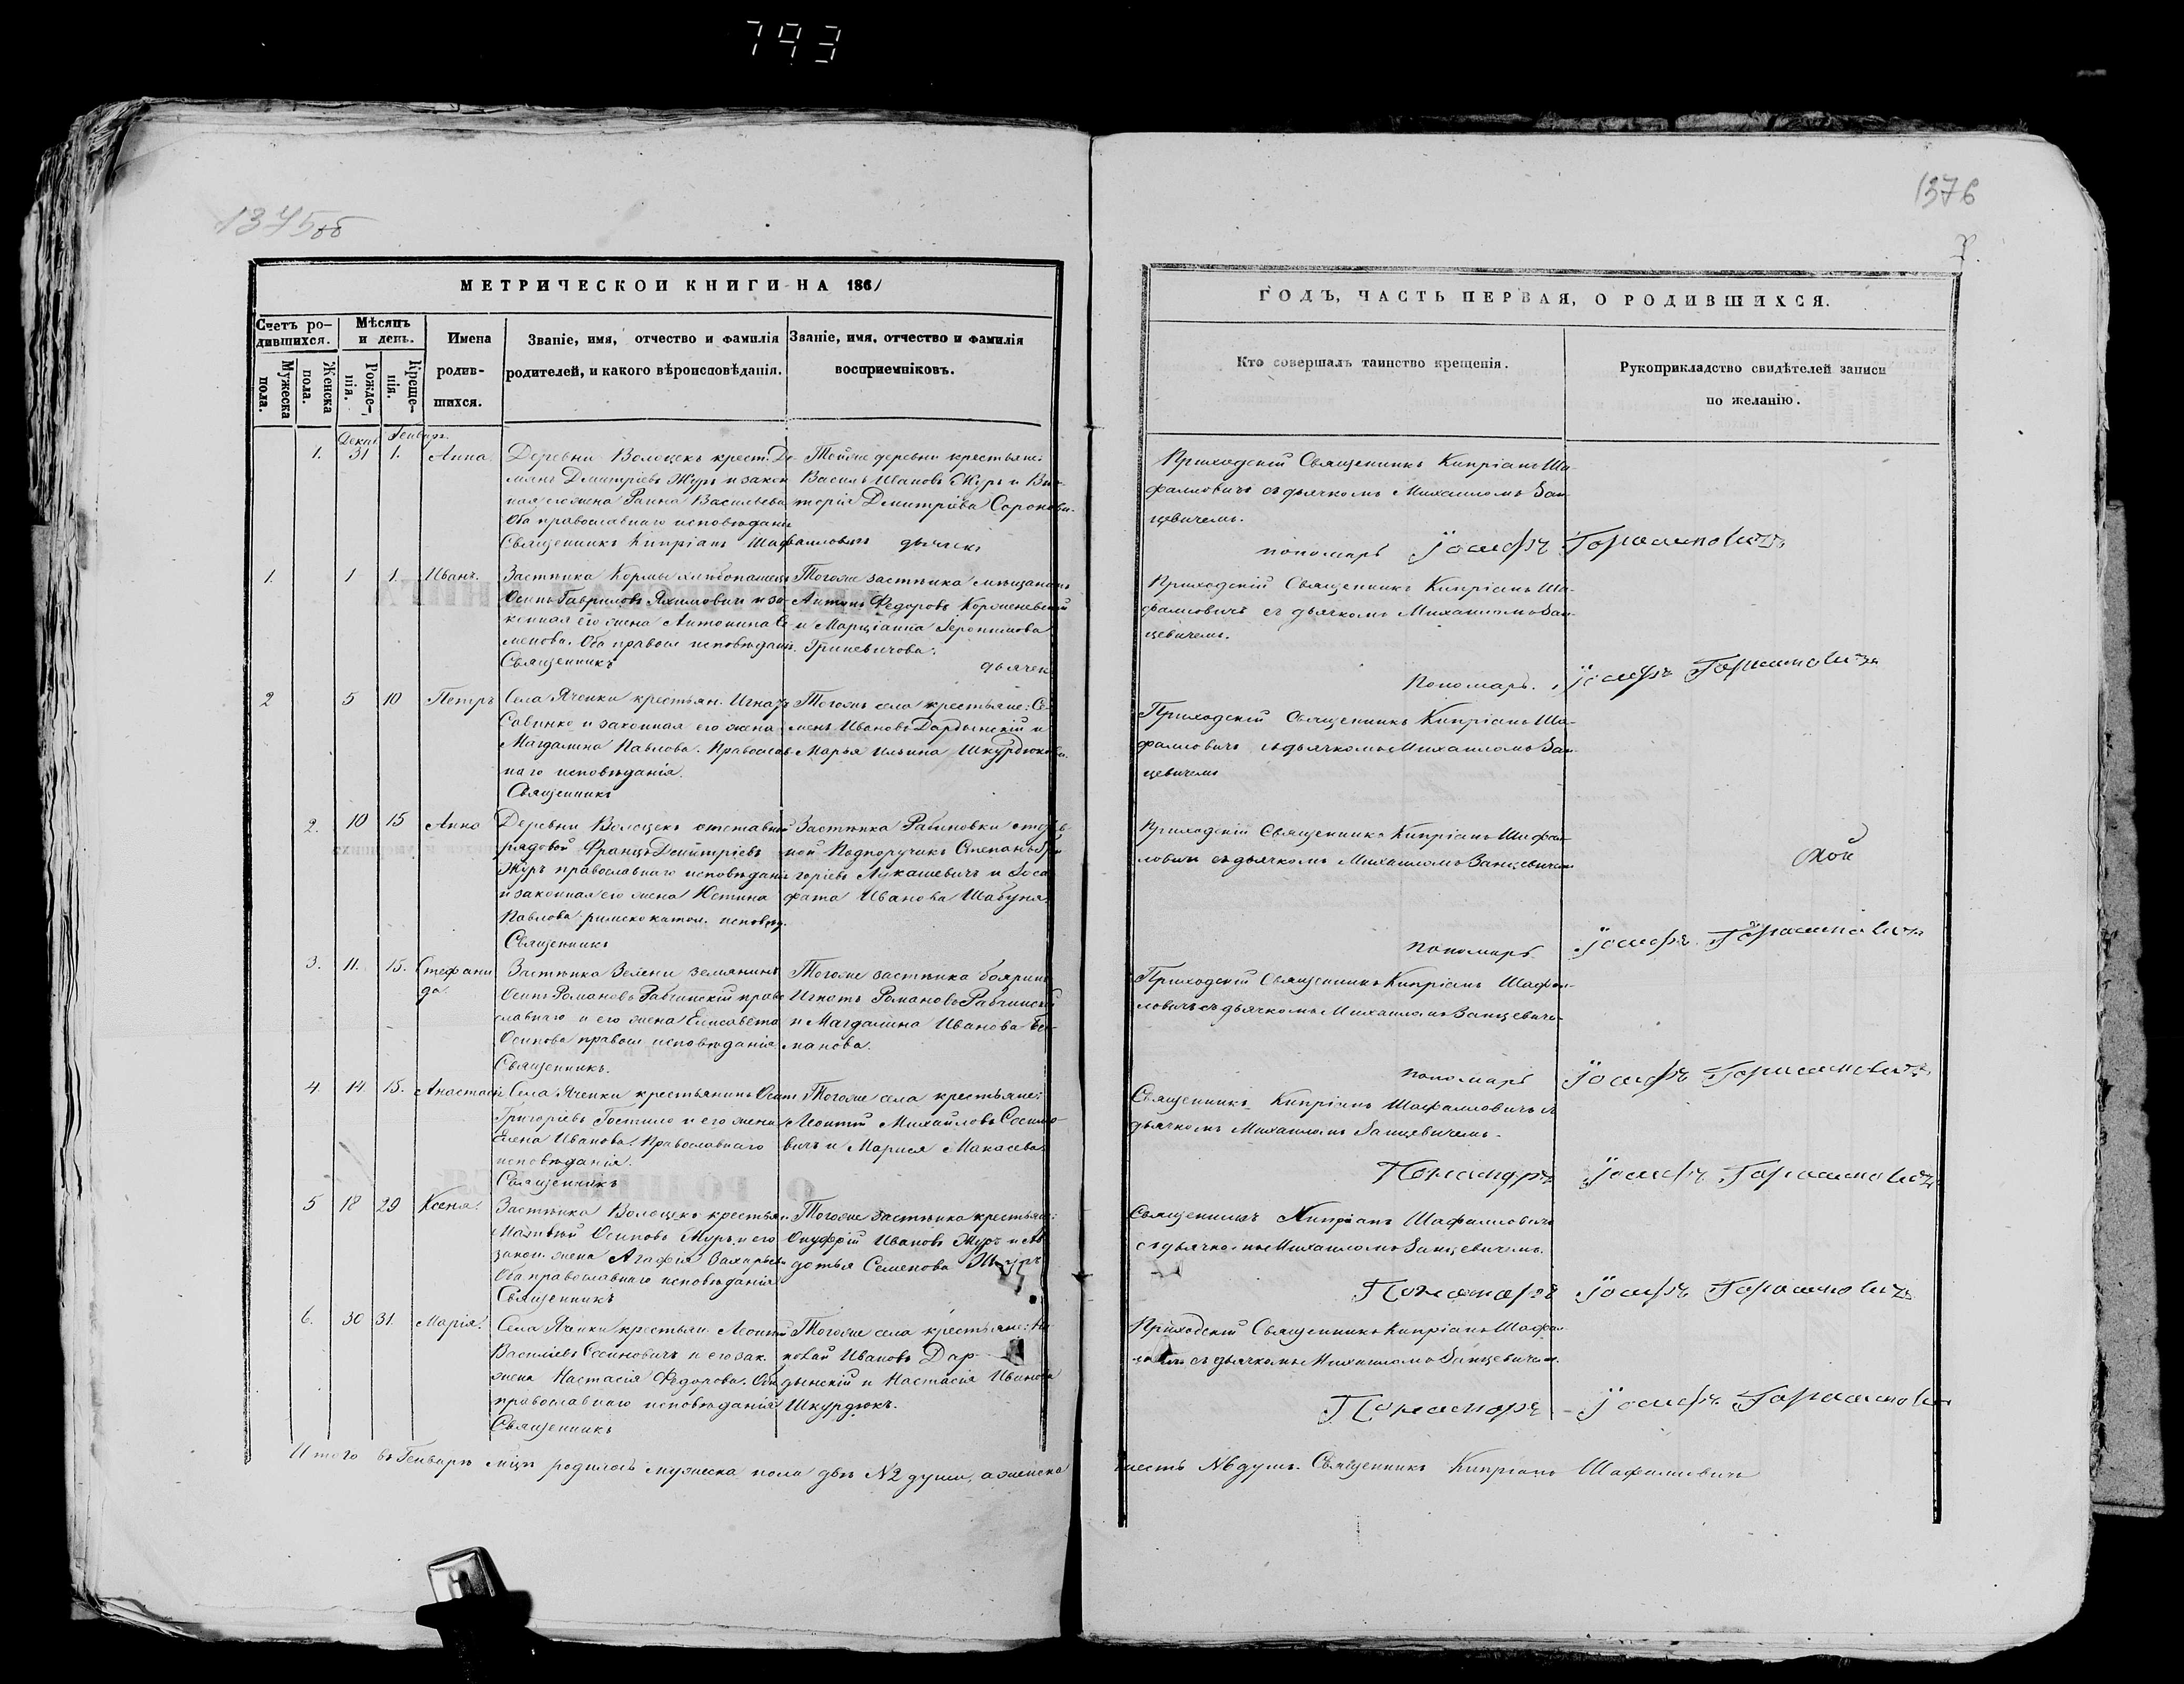 793
1375об
1376
МЕТРИЧЕСКОЙ КНИГИ НА 1861
ГОДЪ, ЧАСТЬ ПЕРВАЯ, О РОДИВШИХСЯ.
Счетъ ро-
дившихся.
Мужеска пола.
Женска пола.
Мѣсяцъ
и день.
Рожде-
нія.
Креще-
нія.
Имена
родив-
шихся.
Званіе, имя, отчество и фамилія
родителей, и какого вѣроисповѣданія.
Званіе, имя, отчество и фамилія
воспріемніковъ.
Кто совершалъ таинство крещенія.
Рукоприкладство свидѣтелей записи
по желанію.
Генварь
1. 31 1. Анна
Деревни Волоцекъ крест. Де-
мьянъ Дмитріевъ Журъ и закон
ная его жена Раина Васильева
Оба православнаго исповѣданія
Священникъ Кипріанъ Шафаловичъ дьячекъ
Тойже деревни крестьяне:
Василь Ивановъ Журъ и Вик-
торія Дмитріева Сорокова.
Приходскій Священникъ Кипріанъ Ша-
фаловичъ съ дьячкомъ Михаиломъ Зан-
цевичемъ.
пономарь Іосифъ
1. 1 1. Иванъ.
Застѣнка Кормы хлѣбопашецъ
Осипъ Гавриловъ Яхимовичъ и за-
конная его жена Антонина Се-
менова. Оба правосл исповѣданія.
Священникъ
Тогоже застѣнка мѣщанинъ
Антонъ Федоровъ
и Марціанна Іеронимова
Гриневичова.
дьячек
Приходскій Священникъ Кипріанъ Ша-
фаловичъ съ дьячкомъ Михаиломъ Зан-
цевичемъ.
Пономарь. Іосифъ
2 5 10 Петръ
Села Ячонки крестьян. Игнатъ
Савинко и законная его жена
Магдалина Павлова. Православ-
наго исповѣданія.
Священникъ
Тогожъ села крестьяне: Се-
менъ Ивановъ Дардынскій и
Марья Ильина Шкурдюкова.
Приходскій Священникъ Кипріанъ Ша-
фаловичъ съ дьячкомъ Михаиломъ Зан-
цевичемъ
2. 10 15 Анна
Деревни Волоцекъ отставной
рядовой Францъ Дмитріевъ
Журъ православнаго исповѣданія
и законная его жена Юстина
Павлова римско катол. исповѣд.
Священникъ
Застѣнка Рабиновки
ной Подпоручикъ Степанъ Гри
горіевъ Лукашевичъ и Іоса
фата Иванова Шабуня.
Приходскій Священникъ Кипріанъ Шафа-
ловичъ съ дьячкомъ Михаиломъ Занцевичем
пономарь Іосифъ
3. 11. 15. Стефани
да.
Застѣнка Зелени землянинъ
Осипъ Романовъ Рабчинскій право
славнаго и его жена Елисавета
Осипова правосл исповѣданія.
Священникъ.
Тогоже застѣнка бояринъ
Игнатъ Романовъ Рабчинскій
и Магдалина Иванова
манова.
Приходскій Священникъ Кипріанъ Шафа-
ловичъ съ дьячкомъ Михаиломъ Занцевиче-
пономарь Іосифъ
4 14 15. Анастасія
Села Ячонки крестьянинъ Осипъ
Григоріевъ Гостило и его жена
Елена Иванова. Православнаго
исповѣданія.
Священникъ
Тогоже села крестьяне:
Леонтій Михайловъ Сосино-
вичъ и Марися Макасева.
Священникъ Кипріанъ Шафаловичъ съ
дьячкомъ Михаиломъ Занцевичемъ.
Пономарь Іосифъ
5 18 29 Ксенія.
Застѣнка Волоцекъ крестьян.
Матвѣй Осиповъ Журъ и его
закон. жена Агафія Захарьева
Оба православнаго исповѣданія
Священникъ
Тогоже застѣнка крестьяне:
Онуфрій Ивановъ Журъ и Ав
дотья Семенова Журъ
Священникъ Кипріанъ Шафаловичъ
съ дьячкомъ Михаиломъ Занцевичемъ.
Пономарь Іосифъ
6. 30 31. Марія.
Села Ячонки крестьян Леонтій
Василіевъ Сосиновичъ и его зак.
жена Настасія Федорова. Оба
православнаго исповѣданія
Священникъ
Тогоже села крестьяне: Ни
колай Ивановъ Дар-
дынскій и Настасія Иванова
Шкурдюкъ.
Приходскій Священникъ Кипріанъ Шафа-
ловичъ съ дьячкомъ Михаиломъ Занцевичем.
Пономарь Іосифъ
Итого въ Генварѣ мцѣ родилось мужеска пола двѣ №2 души, а женска
шесть №6 душъ. Священникъ Кипріанъ Шафаловичъ